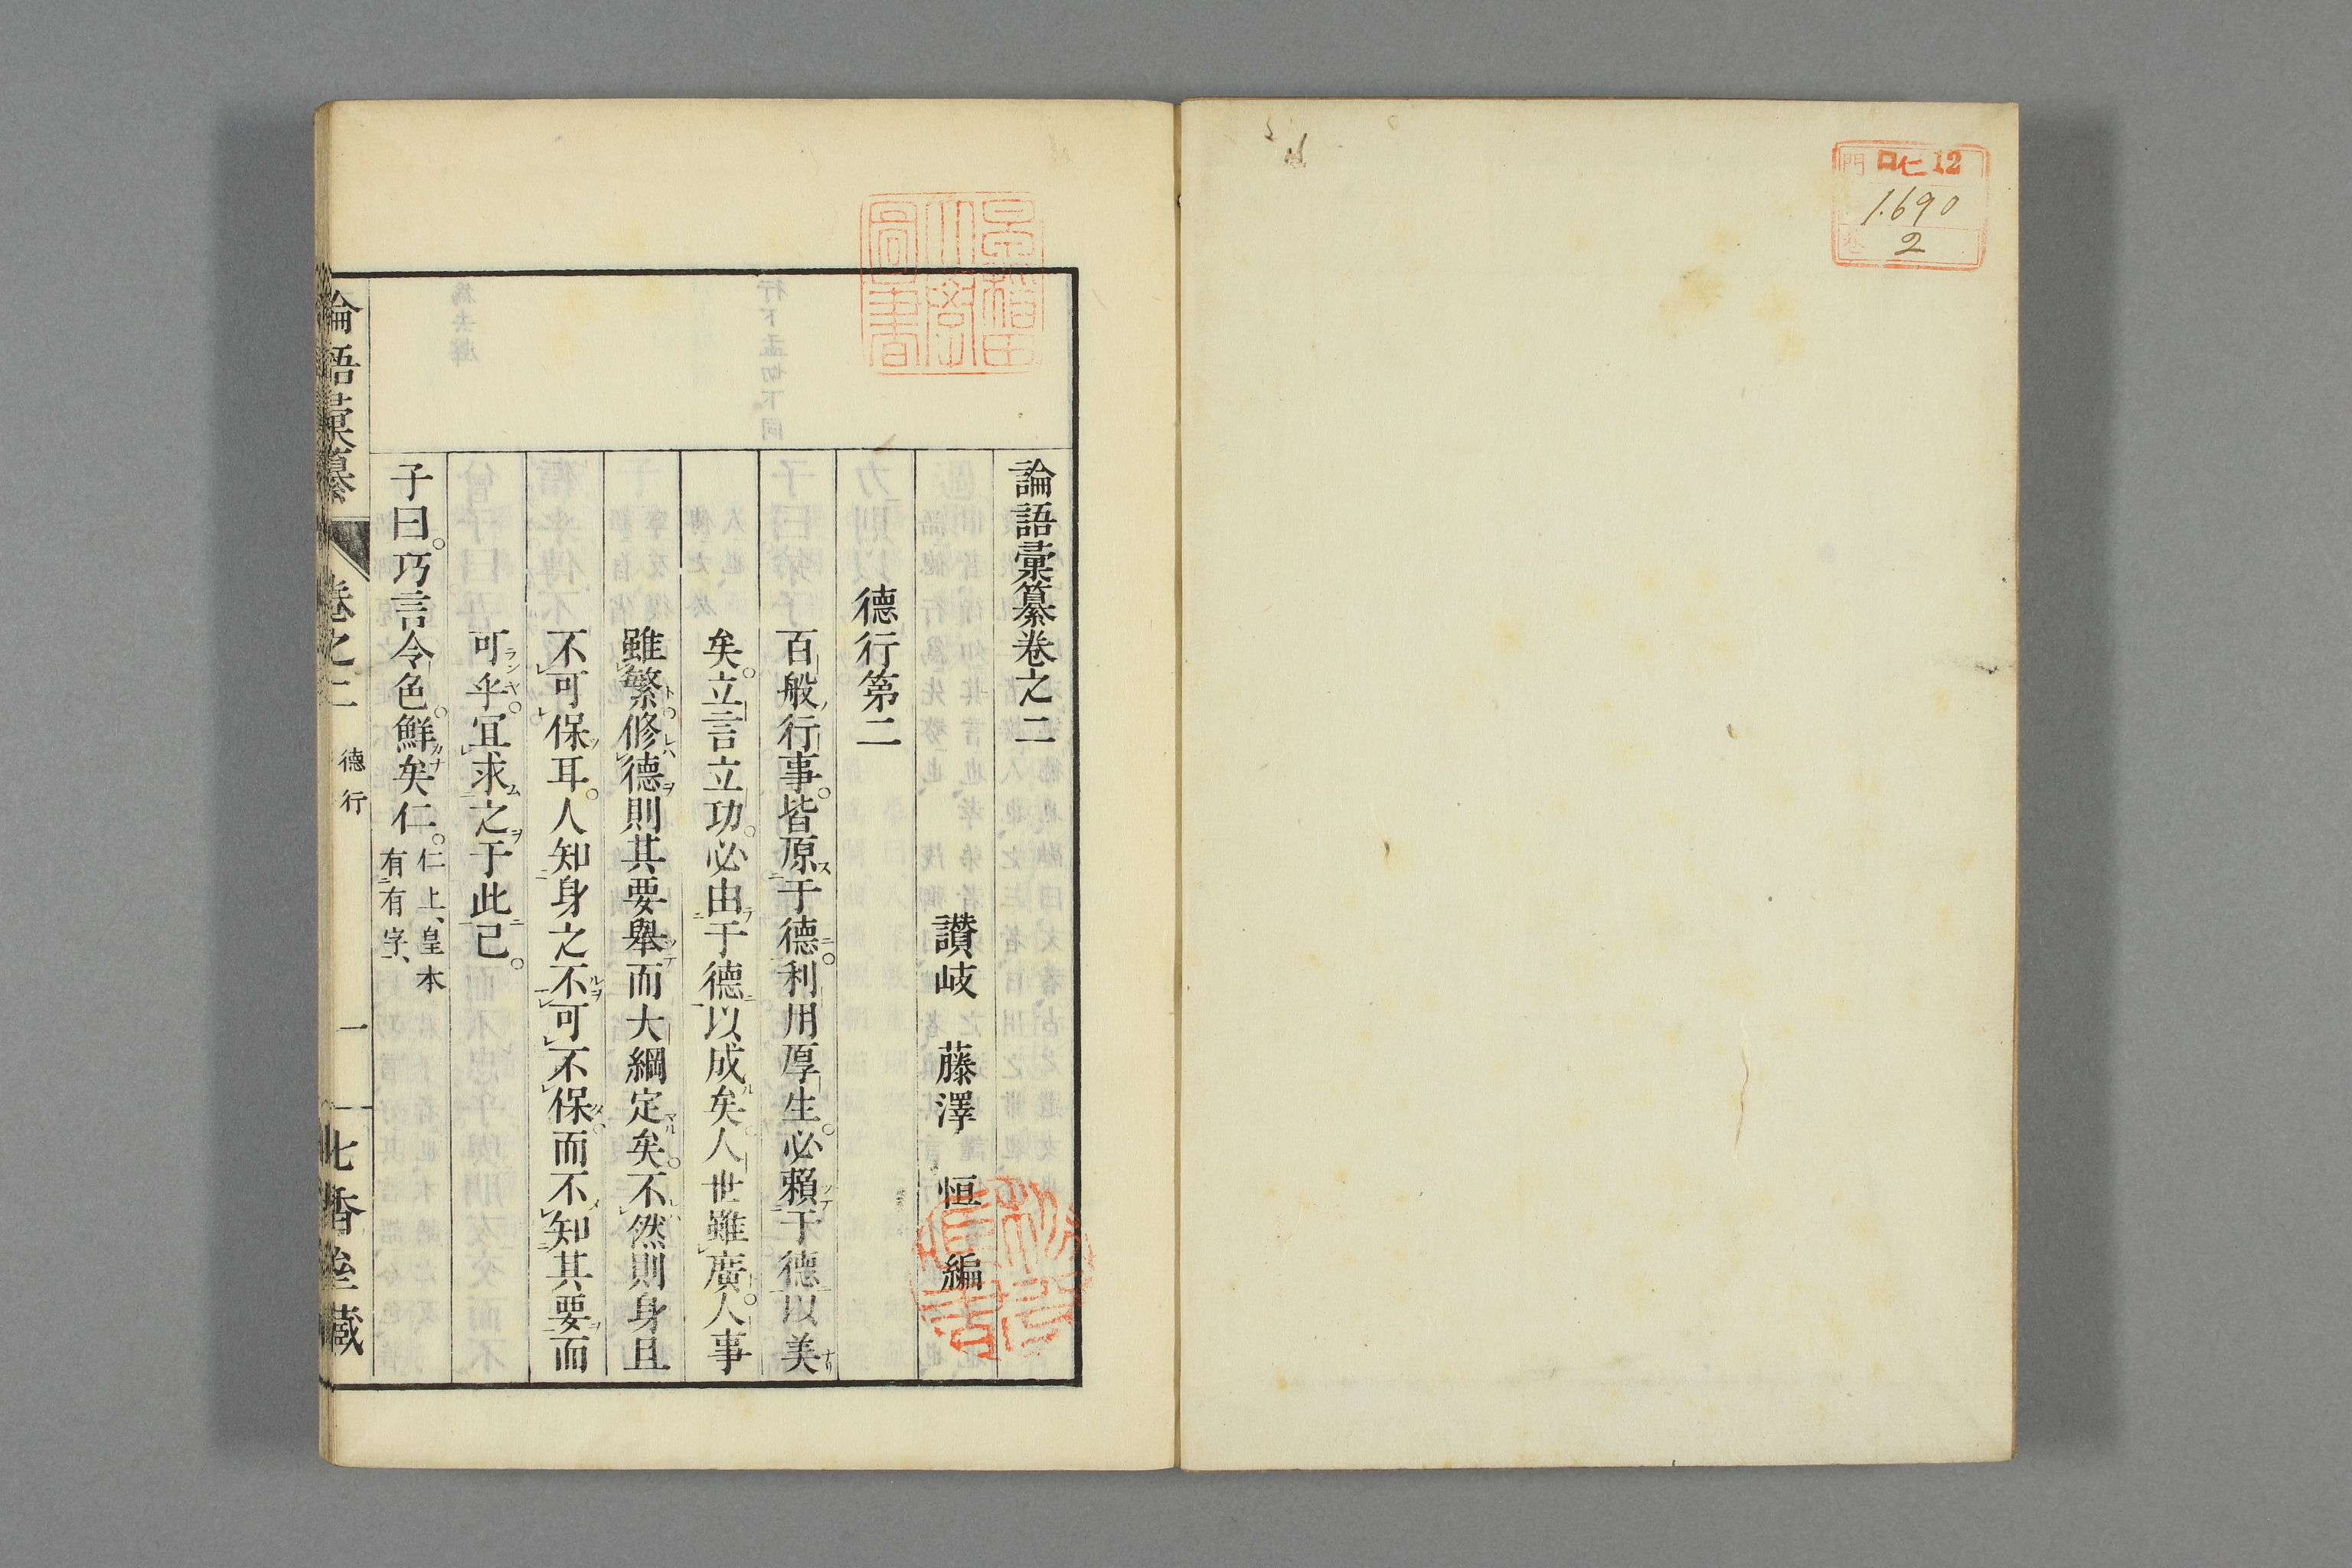 門 口仁 12
1.690
卷 2
早稻田
大學
圖書
論語彙纂卷之二
讃岐 藤澤 恒 編
德行第二
百般行事。皆原于德。利用厚生。必賴于德以美
矣。立言立功。必由于德以成矣。人世雖廣。人事
雖繁。修德則其要舉而大綱定矣。不然則身且
不可保耳。人知身之不可不保。而不知其要而
可乎。宜求之于此已。
子曰。巧言令色。鮮矣仁。仁上、皇本
有有字、
論語彙纂 卷之二 德行 一 七香堂藏